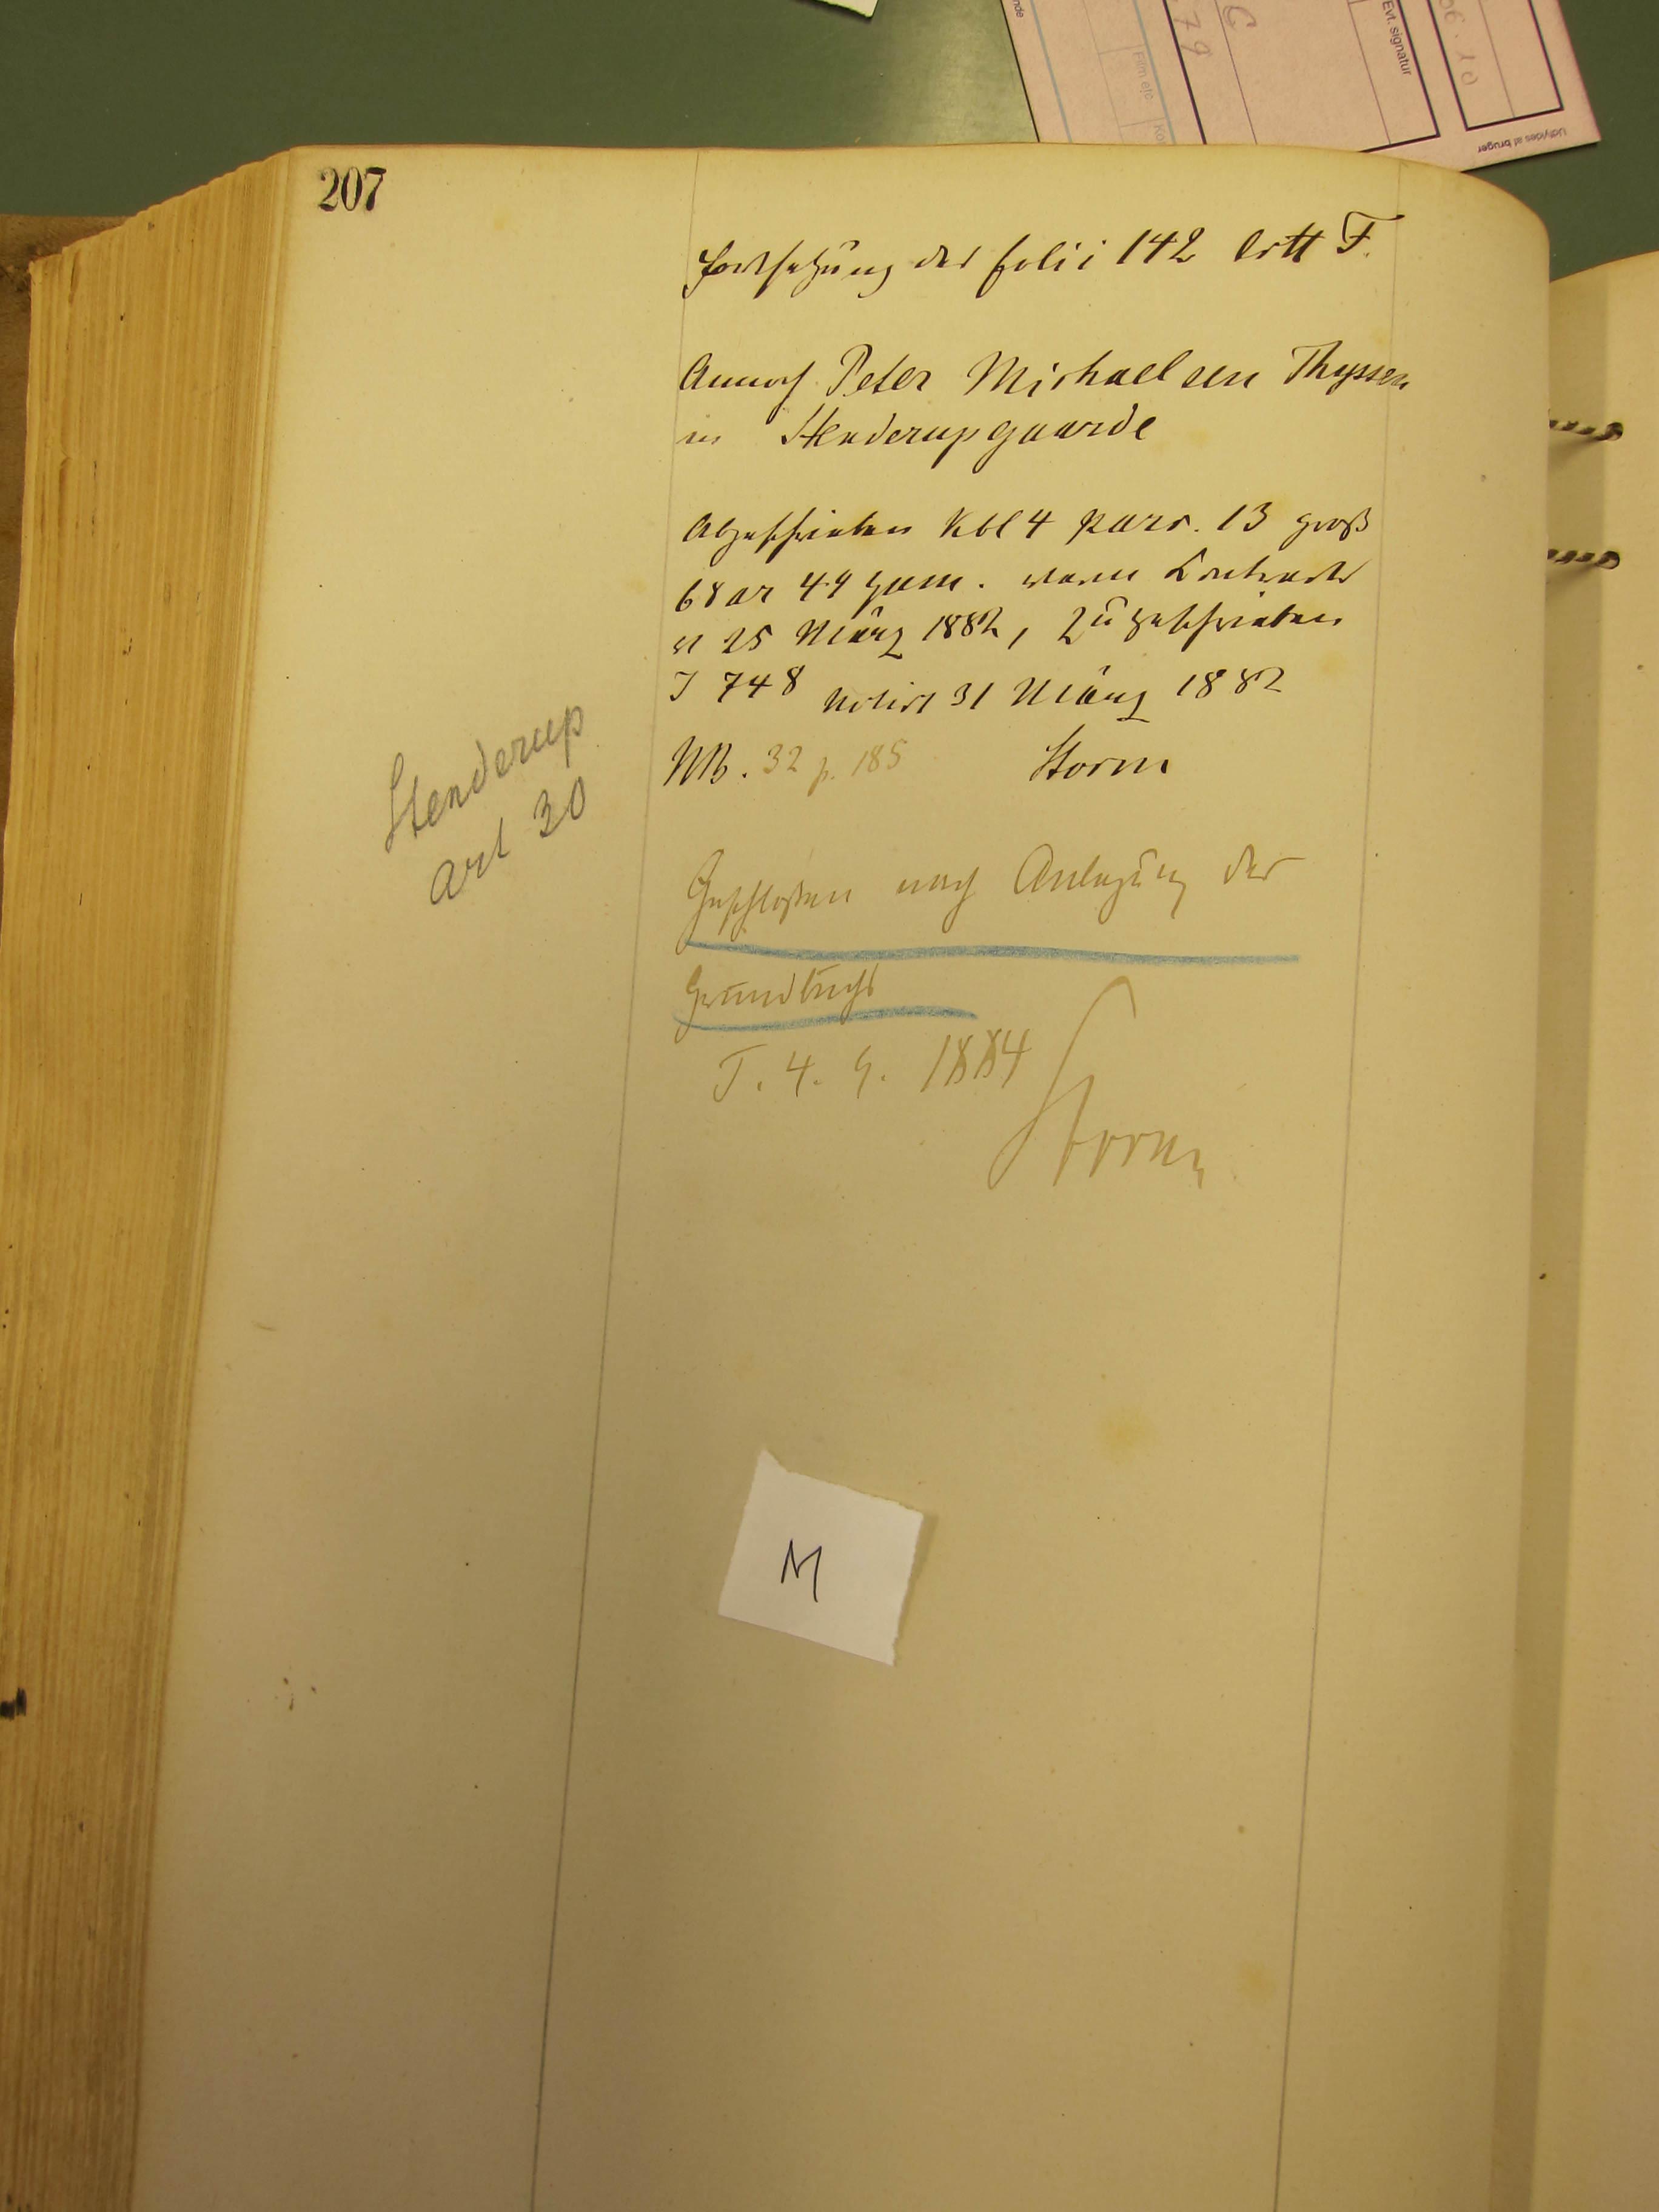 207
Fortsetzung des folii 142 litt F.
Annoch Peter Michaelsen Thyssen
in Stenderupgaarde
Abgeschrieben Kbl 4 parc. 13 groß
68 ar 49 qum. verm Contracts
v 25 März 1882, zugeschrieben
I 748 notirt 31 März 1882
NB. 32 p. 185 Storm
Stenderup
Art 30
Geschloßen nach Anlegung des
Grundbuchs
T. 4. 9. 1884
Storm
M
Evt. signatur
Film etc
Udfyldes af bruger
C
79